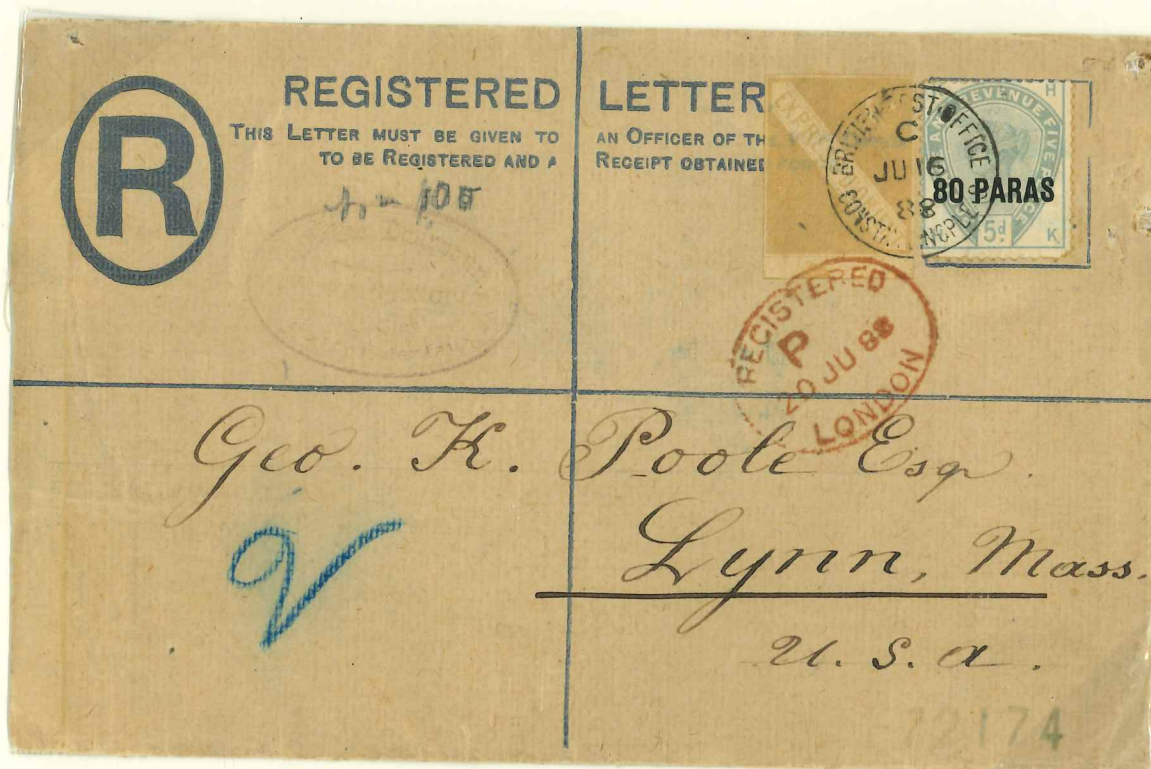 R
REGISTERED LETTER
THIS LETTER MUST BE GIVEN TO AN OFFICER OF THE
TO BE REGISTERED AND A RECEIPT OBTAINED
BRITISH POST OFFICE
C
JU 16
88
REVENUE FIVE
H
80 PARAS
5d
K
REGISTERED
P
20 JU 88
LONDON
Geo. K. Poole Esqr.
Lynn, Mass.
U. S. A.
72174